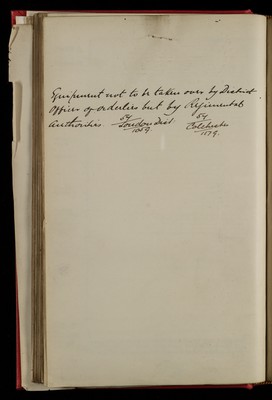 Equipment not to be taken over by District
Officer of orderlies but by Regimental
Authorities. 54/London Dist./1059. 54/Colchester/1579.